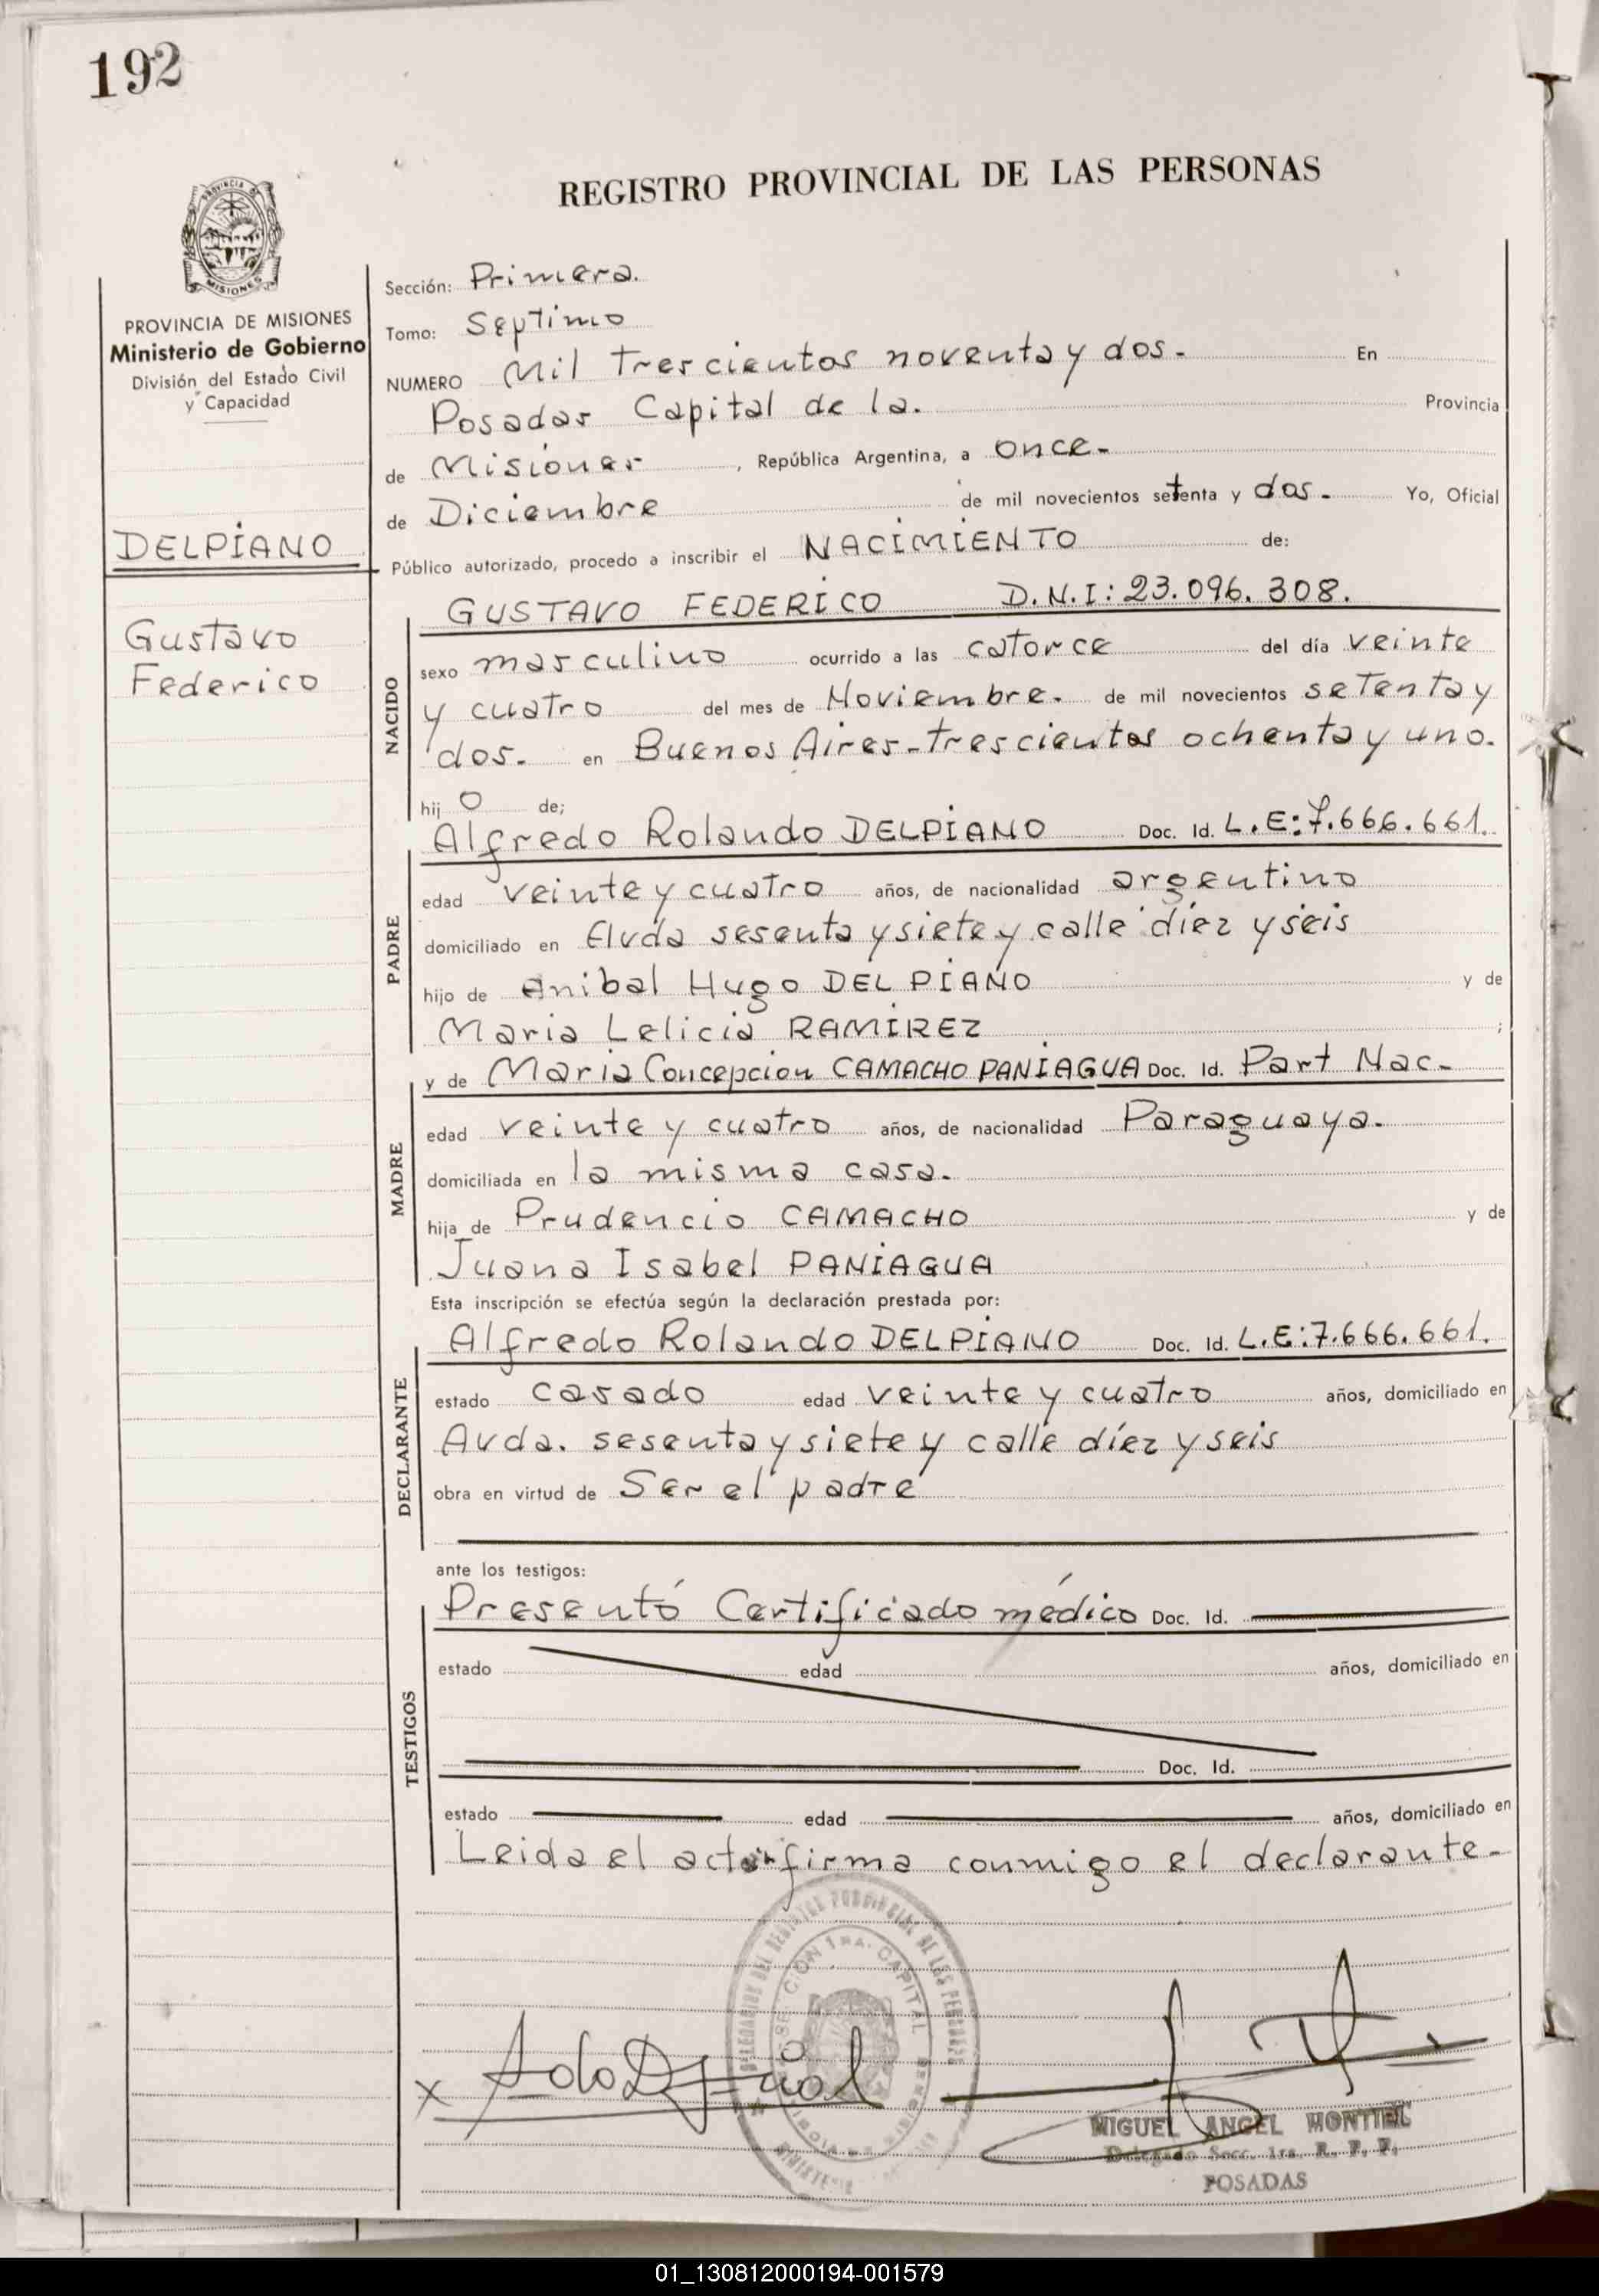 192
REGISTRO PROVINCIAL DE LAS PERSONAS
PROVINCIA DE MISIONES
Ministerio de Gobierno
División del Estado Civil
y Capacidad
DELPIANO
Gustavo
Federico
Sección: Primera.
Tomo: Septimo
NUMERO Mil Trescientos noventa y dos. En
Posadas Capital de la. Provincia
de Misiones, República Argentina, a once.
de Diciembre de mil novecientos setenta y dos. Yo, Oficial
Público autorizado, procedo a inscribir el NACIMIENTO de:
NACIDO
GUSTAVO FEDERICO D.N.I: 23.096.308.
sexo masculino ocurrido a las catorce del día veinte
y cuatro del mes de Noviembre. de mil novecientos setenta y
dos. en Buenos Aires-trescientos ochenta y uno.
hij o de;
PADRE
Alfredo Rolando DELPIANO Doc. Id. L.E:7.666.661.
edad veinte y cuatro años, de nacionalidad argentino
domiciliado en Avda sesenta y siete y calle diez y seis
hijo de Anibal Hugo DELPIANO y de
Maria Lelicia RAMIREZ ;
MADRE
y de Maria Concepcion CAMACHO PANIAGUA Doc. Id. Part Nac-
edad veinte y cuatro años, de nacionalidad Paraguaya.
domiciliada en la misma casa.
hija de Prudencio CAMACHO y de
Juana Isabel PANIAGUA
Esta inscripción se efectúa según la declaración prestada por:
DECLARANTE
Alfredo Rolando DELPIANO Doc. Id. L.E:7.666.661.
estado casado edad veinte y cuatro años, domiciliado en
Avda. sesenta y siete y calle diez y seis
obra en virtud de Ser el padre
ante los testigos:
TESTIGOS
Presentó Certificado médico Doc. Id.
estado edad años, domiciliado en
Doc. Id.
estado edad años, domiciliado en
Leida el acta firma conmigo el declarante-
SECCION 1RA. CAPITAL
MIGUEL ANGEL MONTIEL
Delegado Secc. 1ra. R. P. P.
POSADAS
01_130812000194-001579